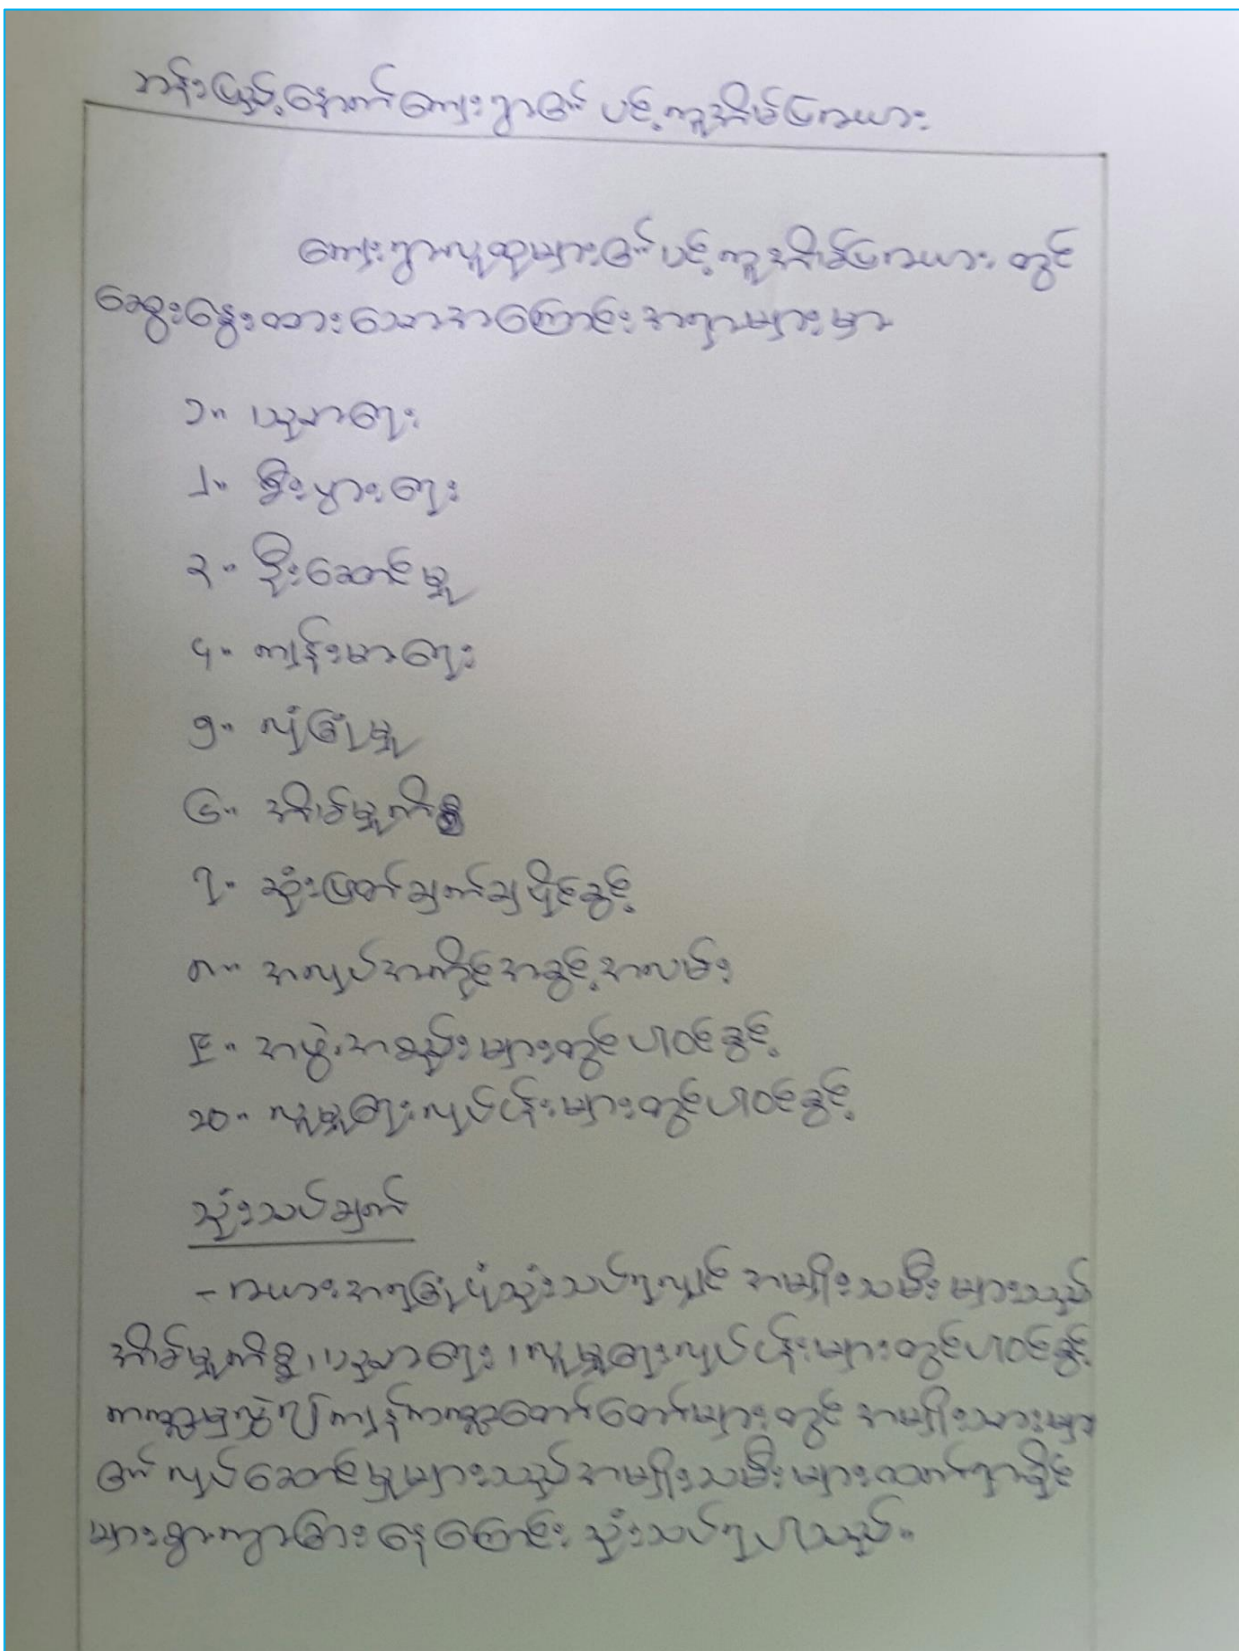 ကျေးရွာလူထုများ၏ ပင့်ကူအိမ်ပြကယား တွင်
ဆွေးနွေးထားသောအကြောင်းအရာများမှာ
၁။ ပညာရေး
၂။ စီးပွားရေး
၃။ ဦးဆောင်မှု
၄။ ကျန်းမာရေး
၅။ လုံခြုံမှု
၆။ အိမ်မှုကိစ္စ
၇။ ဆုံးဖြတ်ချက်ချပိုင်ခွင့်
၈။ အလုပ်အကိုင်အခွင့်အလမ်း
၉။ အဖွဲ့အစည်းများတွင်ပါဝင်ခွင့်
၁၀။ လူမှုရေးလုပ်ငန်းများတွင်ပါဝင်ခွင့်
သုံးသပ်ချက်
- ကယားအရခြုံငုံသုံးသပ်ရလျှင် အမျိုးသမီးများသည်
အိမ်မှုကိစ္စ၊ ပညာရေး၊ လူမှုရေးလုပ်ငန်းများတွင်ပါဝင်ခွင့်
ကဏ္ဍမှလွဲ၍ကျန်ကဏ္ဍတော်တော်များများတွင် အမျိုးသားများ
၏ လုပ်ဆောင်မှုများသည်အမျိုးသမီးများထက်ရာခိုင်
များစွာကွာခြားနေကြောင်း သုံးသပ်ရပါသည်။